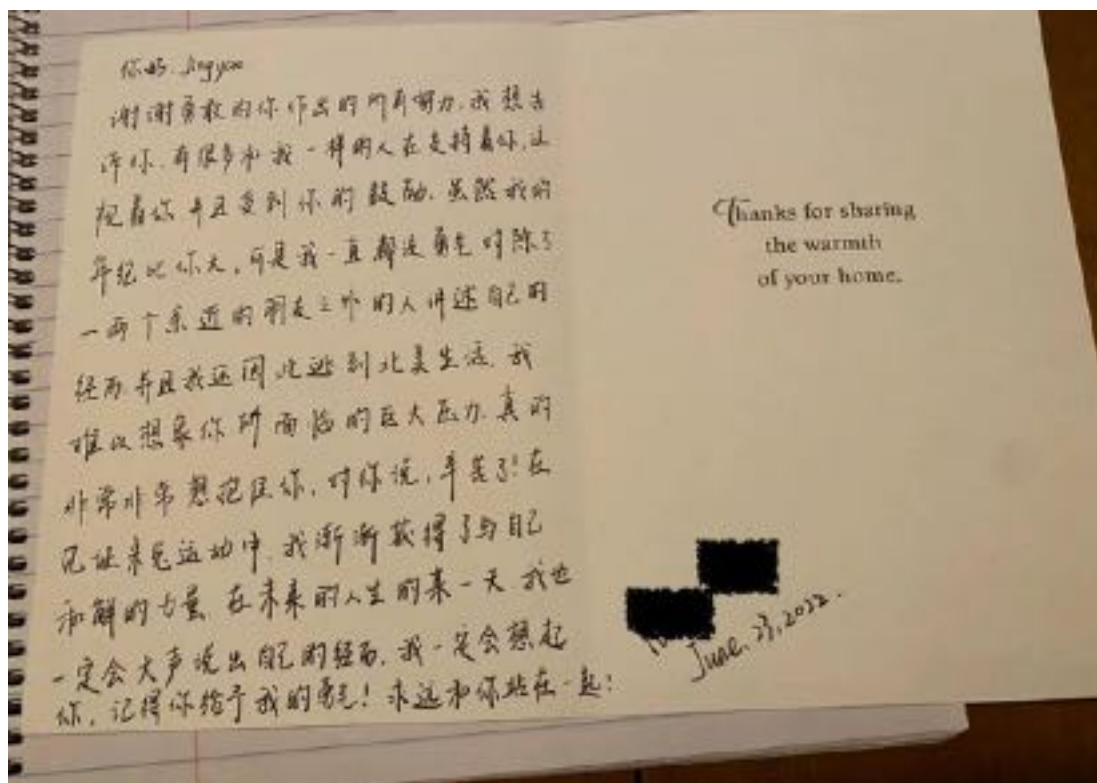 你好, Jingyao
谢谢勇敢的你作出的所有努力,我想告
诉你,有很多和我一样的人在支持着你,注
视着你并且受到你的鼓励。虽然我的
年纪比你大,可是我一直都没勇气对除了
一两个亲近的朋友之外的人讲述自己的
经历并且我还因此逃到北美生活,我
难以想象你所面临的巨大压力,真的
非常非常想抱住你,对你说,辛苦了!在
见证米兔运动中,我渐渐获得了与自己
和解的力量,在未来的人生的某一天,我也
一定会大声说出自己的经历,我一定会想起
你,记得你给予我的勇气!永远和你站在一起!
Thanks for sharing
the warmth
of your home.
June, 23, 2022.